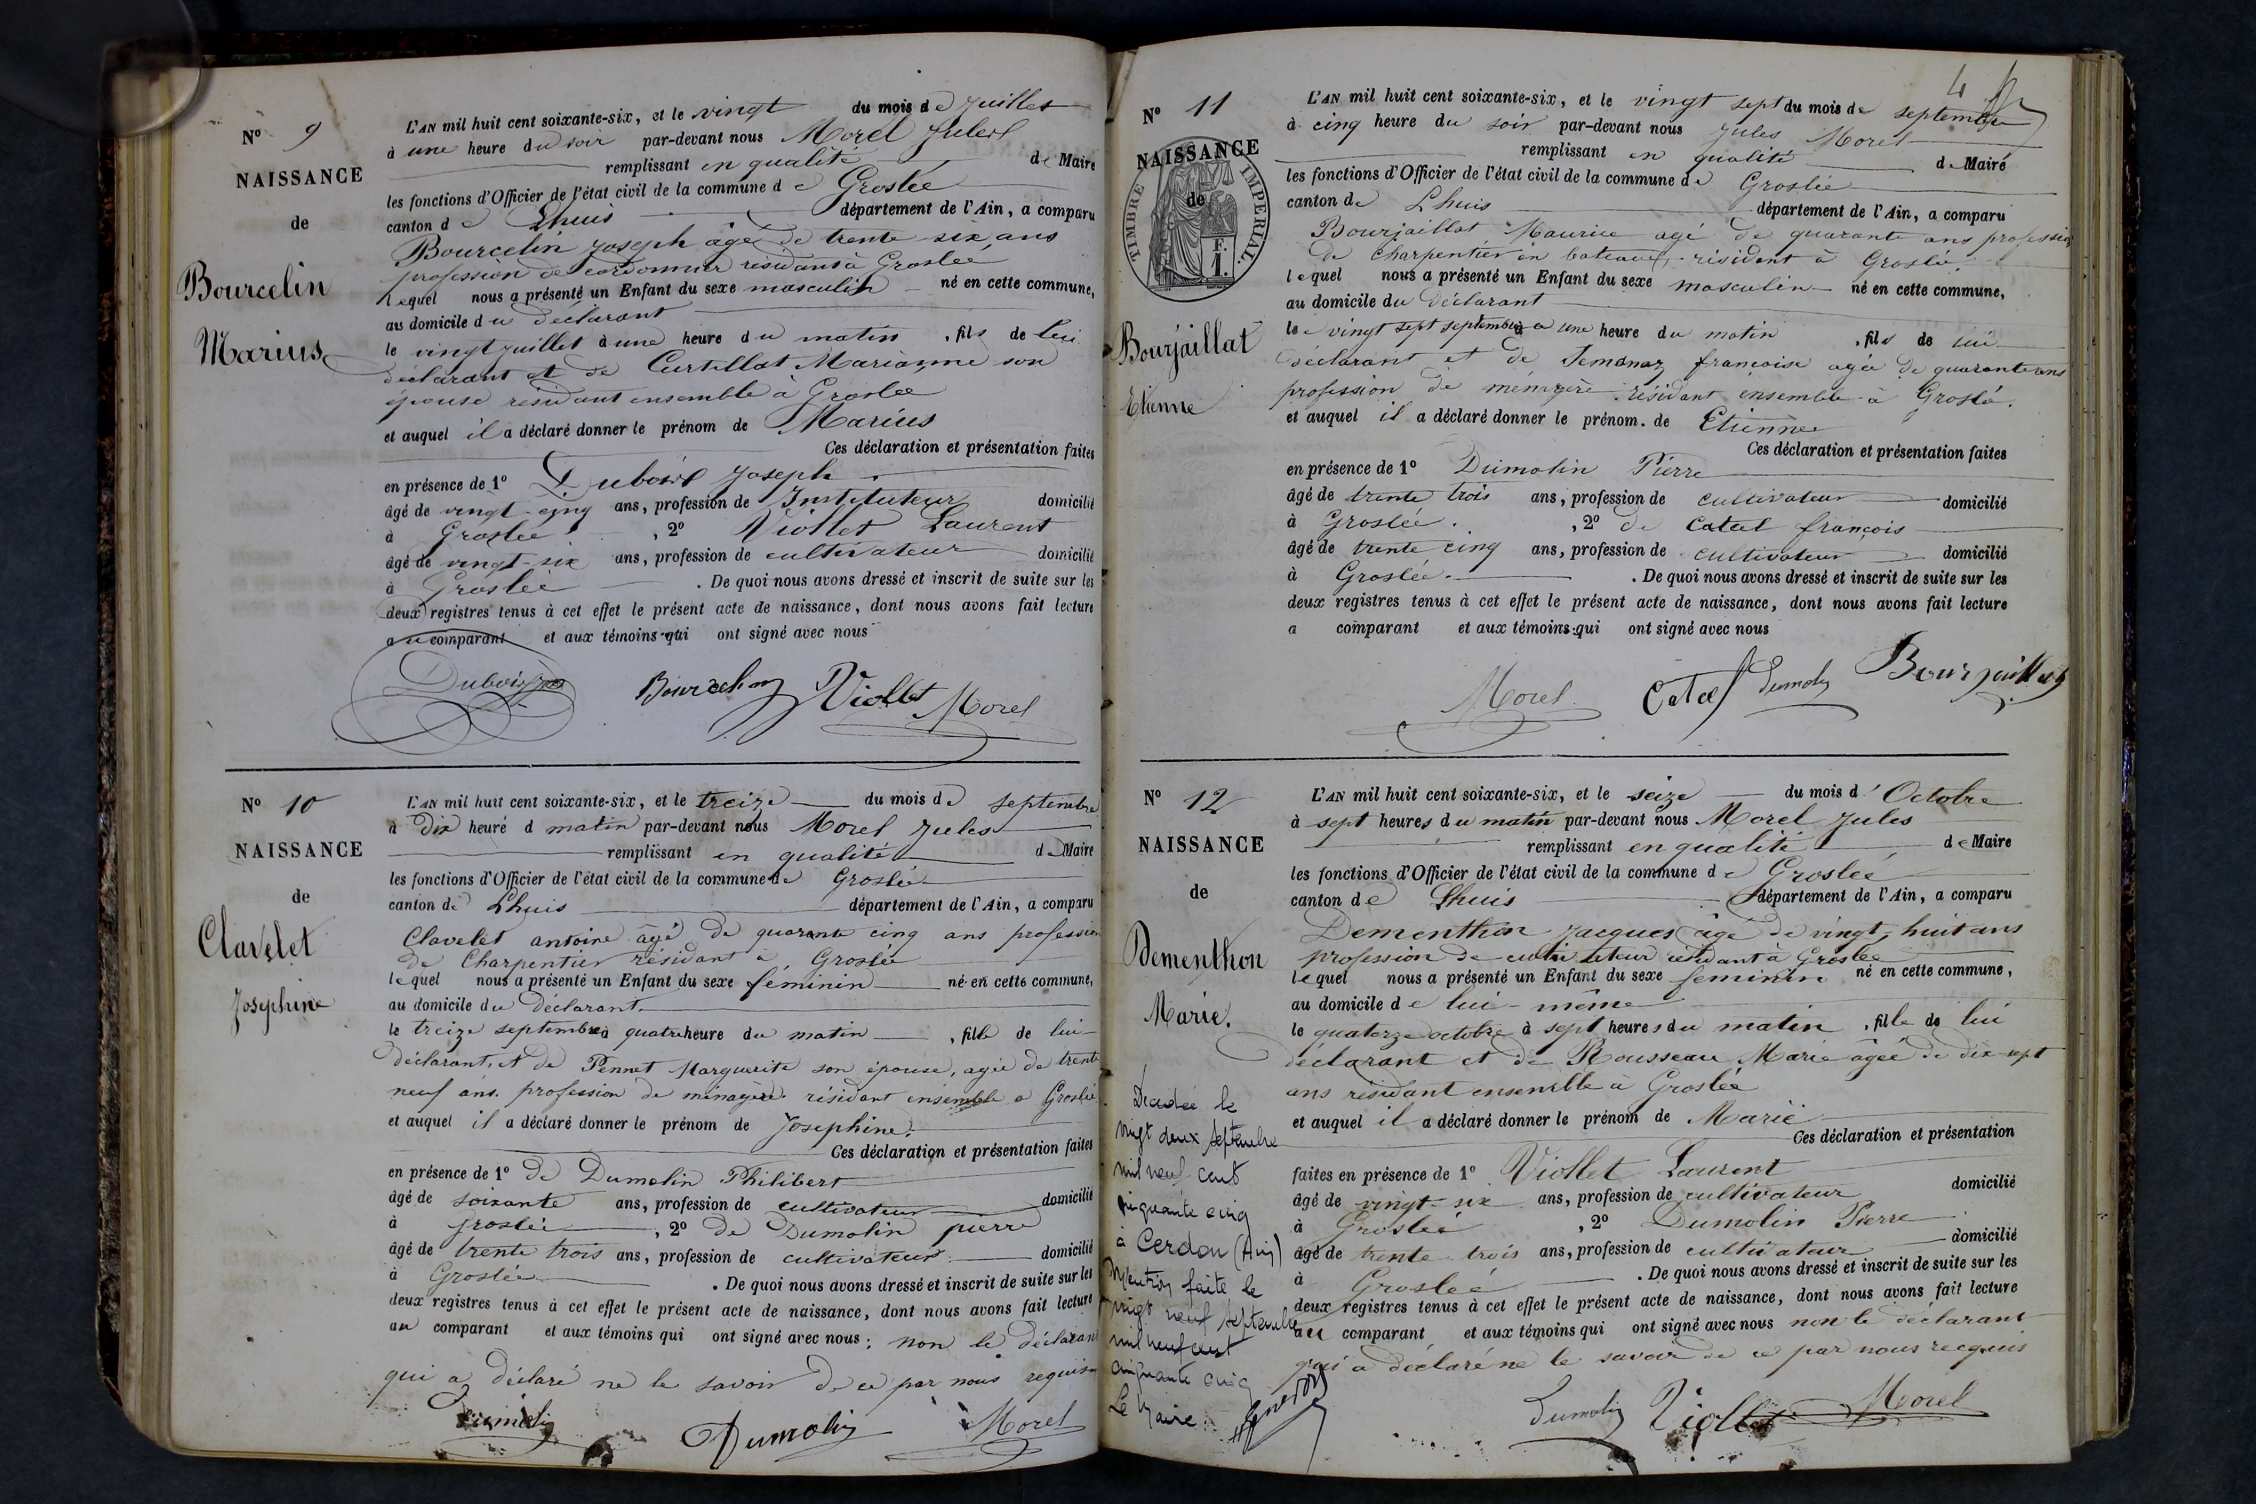 N° 9
NAISSANCE
de
Bourcelin
Marius
L'AN mil huit cent soixante-six, et le vingt du mois de Juillet
à une heure du soir par-devant nous Morel Jules
remplissant en qualité de Maire
les fonctions d'Officier de l'état civil de la commune de Groslée
canton de Lhuis département de l'Ain, a comparu
Bourcelin Joseph âgé de trente six ans
profession de cordonnier résidant à Groslée
lequel nous a présenté un Enfant du sexe masculin né en cette commune,
au domicile du déclarant
le vingt juillet à une heure du matin, fils de lui
déclarant et de Curtillat Marianne son
épouse résidant ensemble à Groslée
et auquel il a déclaré donner le prénom de Marius
Ces déclaration et présentation faites
en présence de 1° Dubois Joseph
âgé de vingt-cinq ans, profession de Instituteur domicilié
à Groslée, 2° Viollet Laurent
âgé de vingt-six ans, profession de cultivateur domicilié
à Groslée. De quoi nous avons dressé et inscrit de suite sur les
deux registres tenus à cet effet le présent acte de naissance, dont nous avons fait lecture
au comparant et aux témoins qui ont signé avec nous
Dubois Bourcelin Viollet Morel
N° 10
NAISSANCE
de
Clavelet
Josephine
L'AN mil huit cent soixante-six, et le treize du mois de septembre
à dix heure d matin par-devant nous Morel Jules
remplissant en qualité de Maire
les fonctions d'Officier de l'état civil de la commune de Groslée
canton de Lhuis département de l'Ain, a comparu
Clavelet antoine âgé de quarante cinq ans profession
de Charpentier résidant à Groslée
lequel nous a présenté un Enfant du sexe féminin né en cette commune,
au domicile du déclarant
le treize septembre à quatre heure du matin, fille de lui
déclarant, et de Pennet Marguerite son épouse, agée de trente
neuf ans. profession de ménagère résidant ensemble a Groslée
et auquel il a déclaré donner le prénom de Josephine.
Ces déclaration et présentation faites
en présence de 1° de Dumolin Philibert
âgé de soixante ans, profession de cultivateur domicilié
à groslée, 2° de Dumolin pierre
âgé de trente trois ans, profession de cultivateur domicilié
à Groslée. De quoi nous avons dressé et inscrit de suite sur les
deux registres tenus à cet effet le présent acte de naissance, dont nous avons fait lecture
au comparant et aux témoins qui ont signé avec nous; non le déclarant
qui a déclaré ne le savoir de ce par nous requis
Dumolin Dumolin Morel
4
N° 11
NAISSANCE
de
TIMBRE IMPERIAL
F.
1.
Bourjaillat
Etienne
L'AN mil huit cent soixante-six, et le vingt sept du mois de septembre
à cinq heure du soir par-devant nous Jules Morel
remplissant en qualité de Maire
les fonctions d'Officier de l'état civil de la commune de Groslée
canton de Lhuis département de l'Ain, a comparu
Bourjaillat Maurice agé de quarante ans profession
de Charpentier en bateaux, résidant à Groslée
lequel nous a présenté un Enfant du sexe masculin né en cette commune,
au domicile du déclarant
le vingt sept septembre à une heure du matin, fils de lui
déclarant et de françoise agée de quarante ans
profession de ménagère résidant ensemble à Groslée.
et auquel il a déclaré donner le prénom. de Etienne
Ces déclaration et présentation faites
en présence de 1° Dumolin Pierre
âgé de trente trois ans, profession de cultivateur domicilié
à Groslée., 2° de Catel françois
âgé de trente cinq ans, profession de cultivateur domicilié
à Groslée. De quoi nous avons dressé et inscrit de suite sur les
deux registres tenus à cet effet le présent acte de naissance, dont nous avons fait lecture
a comparant et aux témoins qui ont signé avec nous
Morel Catel Dumolin Bourjaillat
N° 12
NAISSANCE
de
Dementhon
Marie.
Décédée le
vingt deux septembre
mil neuf cent
cinquante cinq
à Cerdon (Ain)
Mention faite le
vingt neuf septembre
mil neuf cent
cinquante cinq
Le Maire:
L'AN mil huit cent soixante-six, et le seize du mois d'Octobre
à sept heures du matin par-devant nous Morel Jules
remplissant en qualité de Maire
les fonctions d'Officier de l'état civil de la commune de Groslée
canton de Lhuis département de l'Ain, a comparu
Dementhon Jacques âgé de vingt-huit ans
profession de cultivateur résidant à Groslée
lequel nous a présenté un Enfant du sexe feminin né en cette commune,
au domicile de lui-même
le quatorze octobre à sept heures du matin, fille de lui
déclarant et de Rousseau Marie âgée de dix-sept
ans résidant ensemble à Groslée
et auquel il a déclaré donner le prénom de Marie
Ces déclaration et présentation
faites en présence de 1° Viollet Laurent
âgé de vingt-six ans, profession de cultivateur domicilié
à Groslée, 2° Dumolin Pierre
âgé de trente-trois ans, profession de cultivateur domicilié
à Groslée. De quoi nous avons dressé et inscrit de suite sur les
deux registres tenus à cet effet le présent acte de naissance, dont nous avons fait lecture
au comparant et aux témoins qui ont signé avec nous non le déclarant
qui a déclaré ne le savoir de ce par nous recquis
Dumolin Viollet Morel